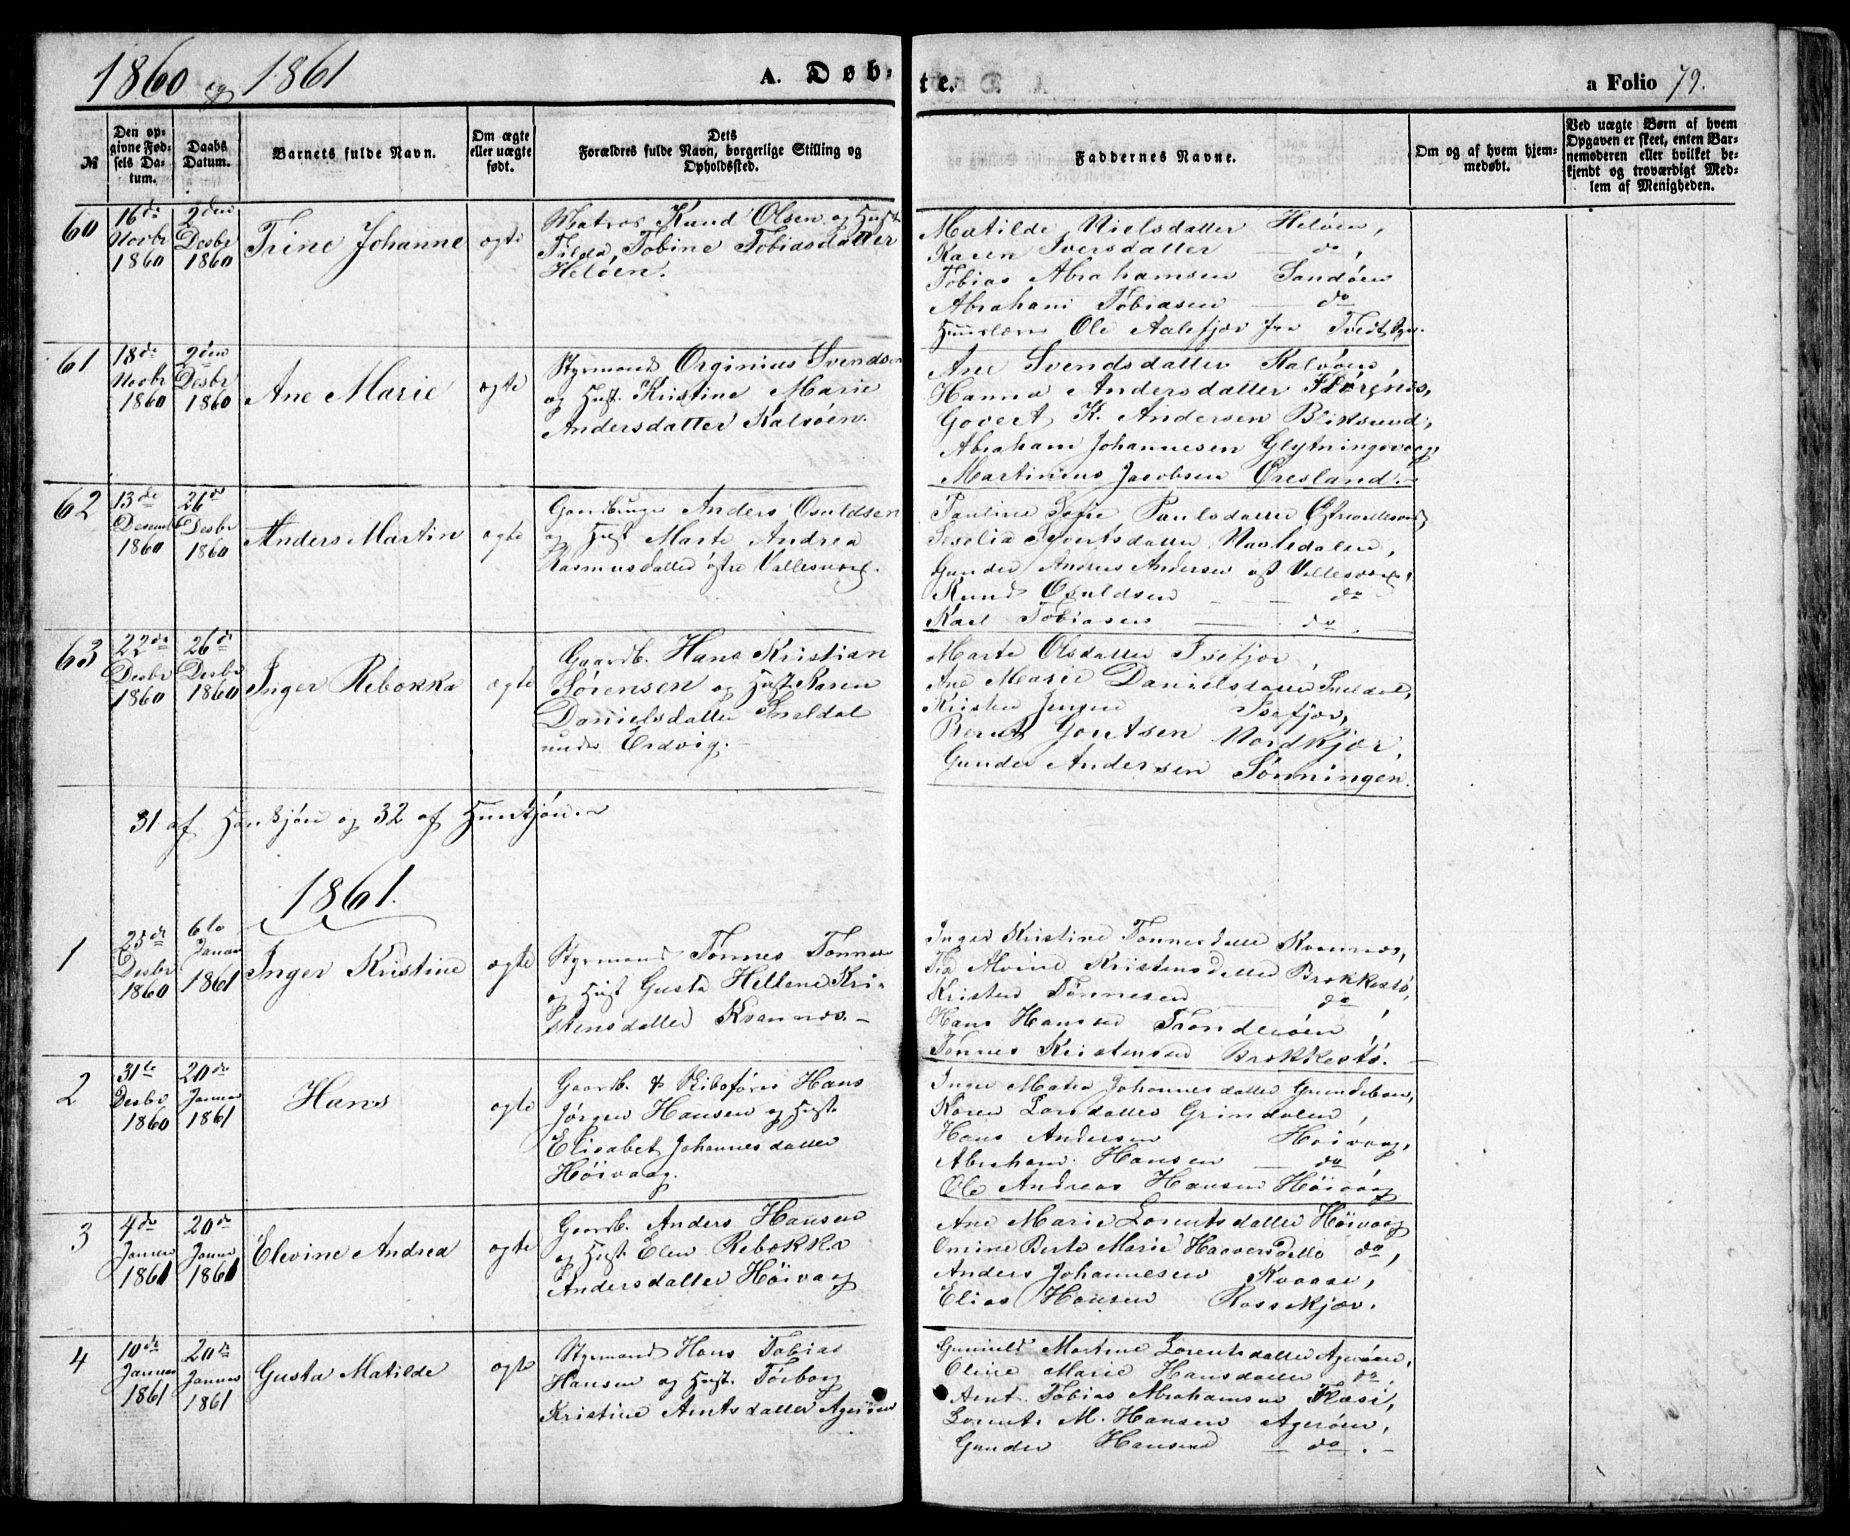 1860 og 1861
A. Døb-
te.
a Folio 79.
№
Den op-
givne Fød-
sels Da-
tum.
Daabs
Datum.
Barnets fulde Navn.
Om ægte
eller uægte
født.
Dets
Forældres fulde Navn, borgerlige Stilling og
Opholdssted.
Faddernes Navne.
Om og af hvem hjem-
medøbt.
Ved uægte Børn af hvem
Opgaven er skeet, enten Bar-
nemoderen eller hvilket be-
kjendt og troværdigt Med-
lem af Menigheden.
60
16de
Novbr
1860
2den
Desbr
1860
Trine Johanne
ægte
Matros Knud Olsen og Hust
Tilda Tobine Tobiasdatter
Heløen.
Matilde Nielsdatter Heløen,
Karen Iversdatter do,
Tobias Abrahamsen Sandøen
Abraham Tobiasen do
Ole Aalefjær
61
18de
Novbr
1860
2den
Desbr
1860
Ane Marie
ægte
Styrmand Orginius Svendsen
og Hust. Kristine Marie
Andersdatter Kalvøen.
Ane Svendsdatter Kalvøen,
Hanna Andersdatter
Govert K. Andersen Bliksund,
Abraham Johannesen Glytningsvaag,
Martinius Jacobsen Øresland.
62
13de
Desember
1860
26de
Desbr
1860
Anders Martin
ægte
Gaardbruger Anders Osuldsen
og Hust Marte Andrea
Rasmusdatter østre Vallesværd.
Pauline Sofie Paulsdatter
Seselia Syvertsdatter
Gunder Andreas Andersen øst Vallesværd,
Knud Osuldsen do
Karl Tobiasen do.
63
22de
Desbr
1860
26de
Desbr
1860
Inger Rebekka
ægte
Gaardb. Hans Kristian
Sørensen og Hust Karen
Danielsdatter Sneldal
under Eidvig.
Marte Olsdatter Isefjær,
Ane Marie Danielsdatter Sneldal,
Kristen Jensen Isefjær,
Bernt Gontsen Nordkjær,
Gunder Andersen Sønningen.
31 af Hankjøn og 32 af Hunkjøn.
1861.
1
23de
Desbr
1860
6te
Januar
1861
Inger Kristine
ægte
Styrmand Tønnes Tønnesen
og Hust Gusta Hellene Kri-
stensdatter Kvannes.
Inger Kristine Tønnesdatter Kvannes,
Alvine Kristensdatter Brekkestø,
Kristen Tønnesen do,
Hans Hansen Trondeøen,
Tønnes Kristensen Brekkestø.
2
31te
Desbr
1860
20de
Januar
1861
Hans
ægte
Gaardb. & Skibsfører Hans
Jørgen Hansen og Hust.
Elisabet Johannesdatter
Høivaag.
Inger Matea Johannesdatter
Karen Larsdatter Grimdalen,
Hans Andersen Høivaag,
Abraham Hansen do
Ole Andreas Hansen Høivaag
3
4de
Januar
1861
20de
Januar
1861
Elevine Andrea
ægte
Gaardb. Anders Hansen
og Hust. Elen Rebekka
Andersdatter Høivaag
Ane Marie Lorentsdatter Høivaag
Omine Berte Marie do,
Anders Johannesen Kvaase,
Elias Hansen Rossekjær.
4
10de
Januar
1861
20de
Januar
1861
Gusta Matilde
ægte
Styrmand Hans Tobias
Hansen og Hust. Torborg
Kristine Arntsdatter Agerøen
Gunnild Martine Lorentsdatter Agerøen,
Oline Marie Hansdatter do,
Arnt Tobias Abrahamsen
Lorents M. Hansen Agerøen,
Gunder Hansen do.